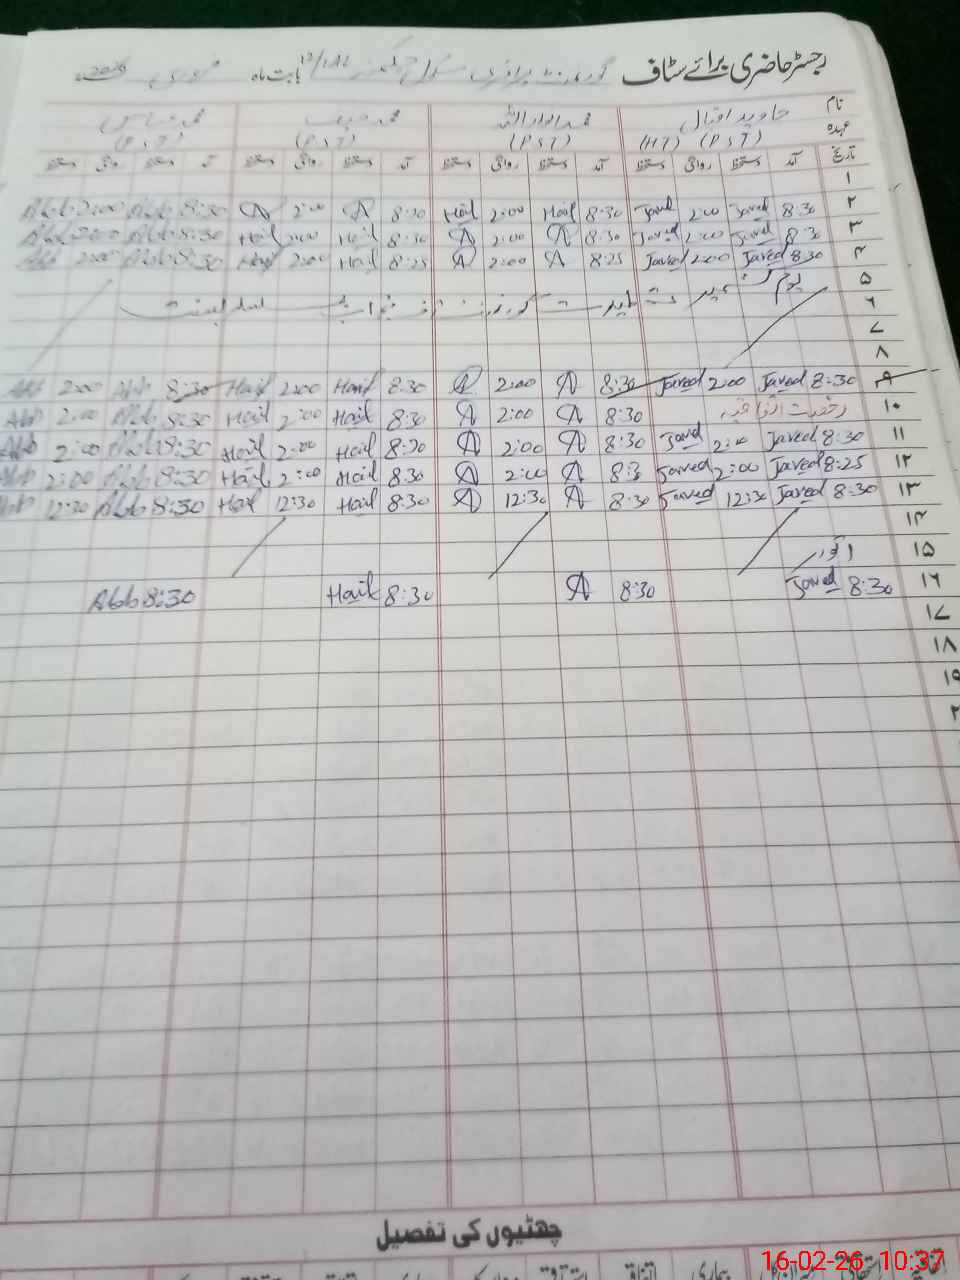 رجسٹر حاضری برائے سٹاف گورنمنٹ پرائمری سکول 12/1AL بابت ماہ فروری 2026
نام جاوید اقبال محمد انوار اللہ محمد حنیف محمد عباس
عہدہ (HT) (PST) (PST) (PST) (PST)
تاریخ آمد دستخط روانگی دستخط آمد دستخط روانگی دستخط آمد دستخط روانگی دستخط آمد دستخط روانگی دستخط
۱
۲ 8:30 Javed 2:00 Javed 8:30 Hail 2:00 Hail 8:30 A 2:00 A 8:30 Abb 2:00 Abb
۳ 8:30 Javed 2:00 Javed 8:30 A 2:00 A 8:30 Hail 2:00 Hail 8:30 Abb 2:00 Abb
۴ 8:30 Javed 2:00 Javed 8:25 A 2:00 A 8:25 Hail 2:00 Hail 8:30 Abb 2:00 Abb
۵ یوم کشمیر
۶ گورنمنٹ آف پنجاب
۷
۸
۹ 8:30 Javed 2:00 Javed 8:30 A 2:00 A 8:30 Hail 2:00 Hail 8:30 Abb 2:00 Abb
۱۰ رخصت اتفاقیہ 8:30 A 2:00 A 8:30 Hail 2:00 Hail 8:30 Abb 2:00 Abb
۱۱ 8:30 Javed 2:00 Javed 8:30 A 2:00 A 8:30 Hail 2:00 Hail 8:30 Abb 2:00 Abb
۱۲ 8:25 Javed 2:00 Javed 8:3 A 2:00 A 8:30 Hail 2:00 Hail 8:30 Abb 2:00 Abb
۱۳ 8:30 Javed 12:30 Javed 8:30 A 12:30 A 8:30 Hail 12:30 Hail 8:30 Abb 12:30 Abb
۱۴
۱۵ اتوار
۱۶ 8:30 Javed 8:30 A 8:30 Hail 8:30 Abb
۱۷
۱۸
۱۹
۲
چھٹیوں کی تفصیل
اتفاقیہ استحقاقی بیماری اتفاقیہ
16-02-26 10:37